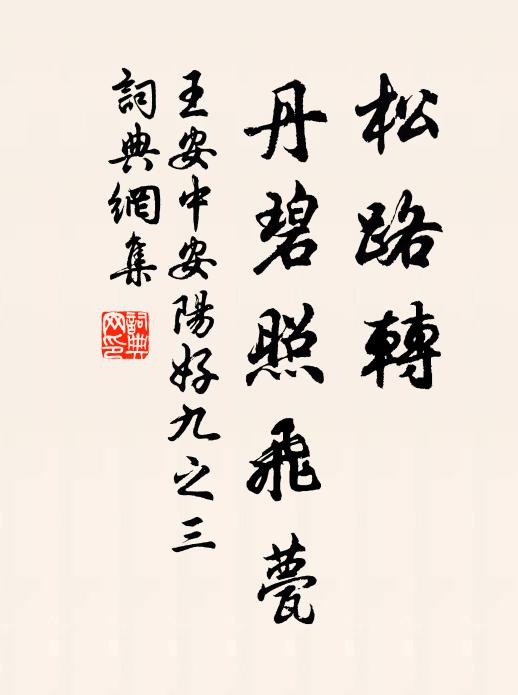 松路轉
丹碧照飛甍
王安中安陽好九之三
詞典網集
詞典網印